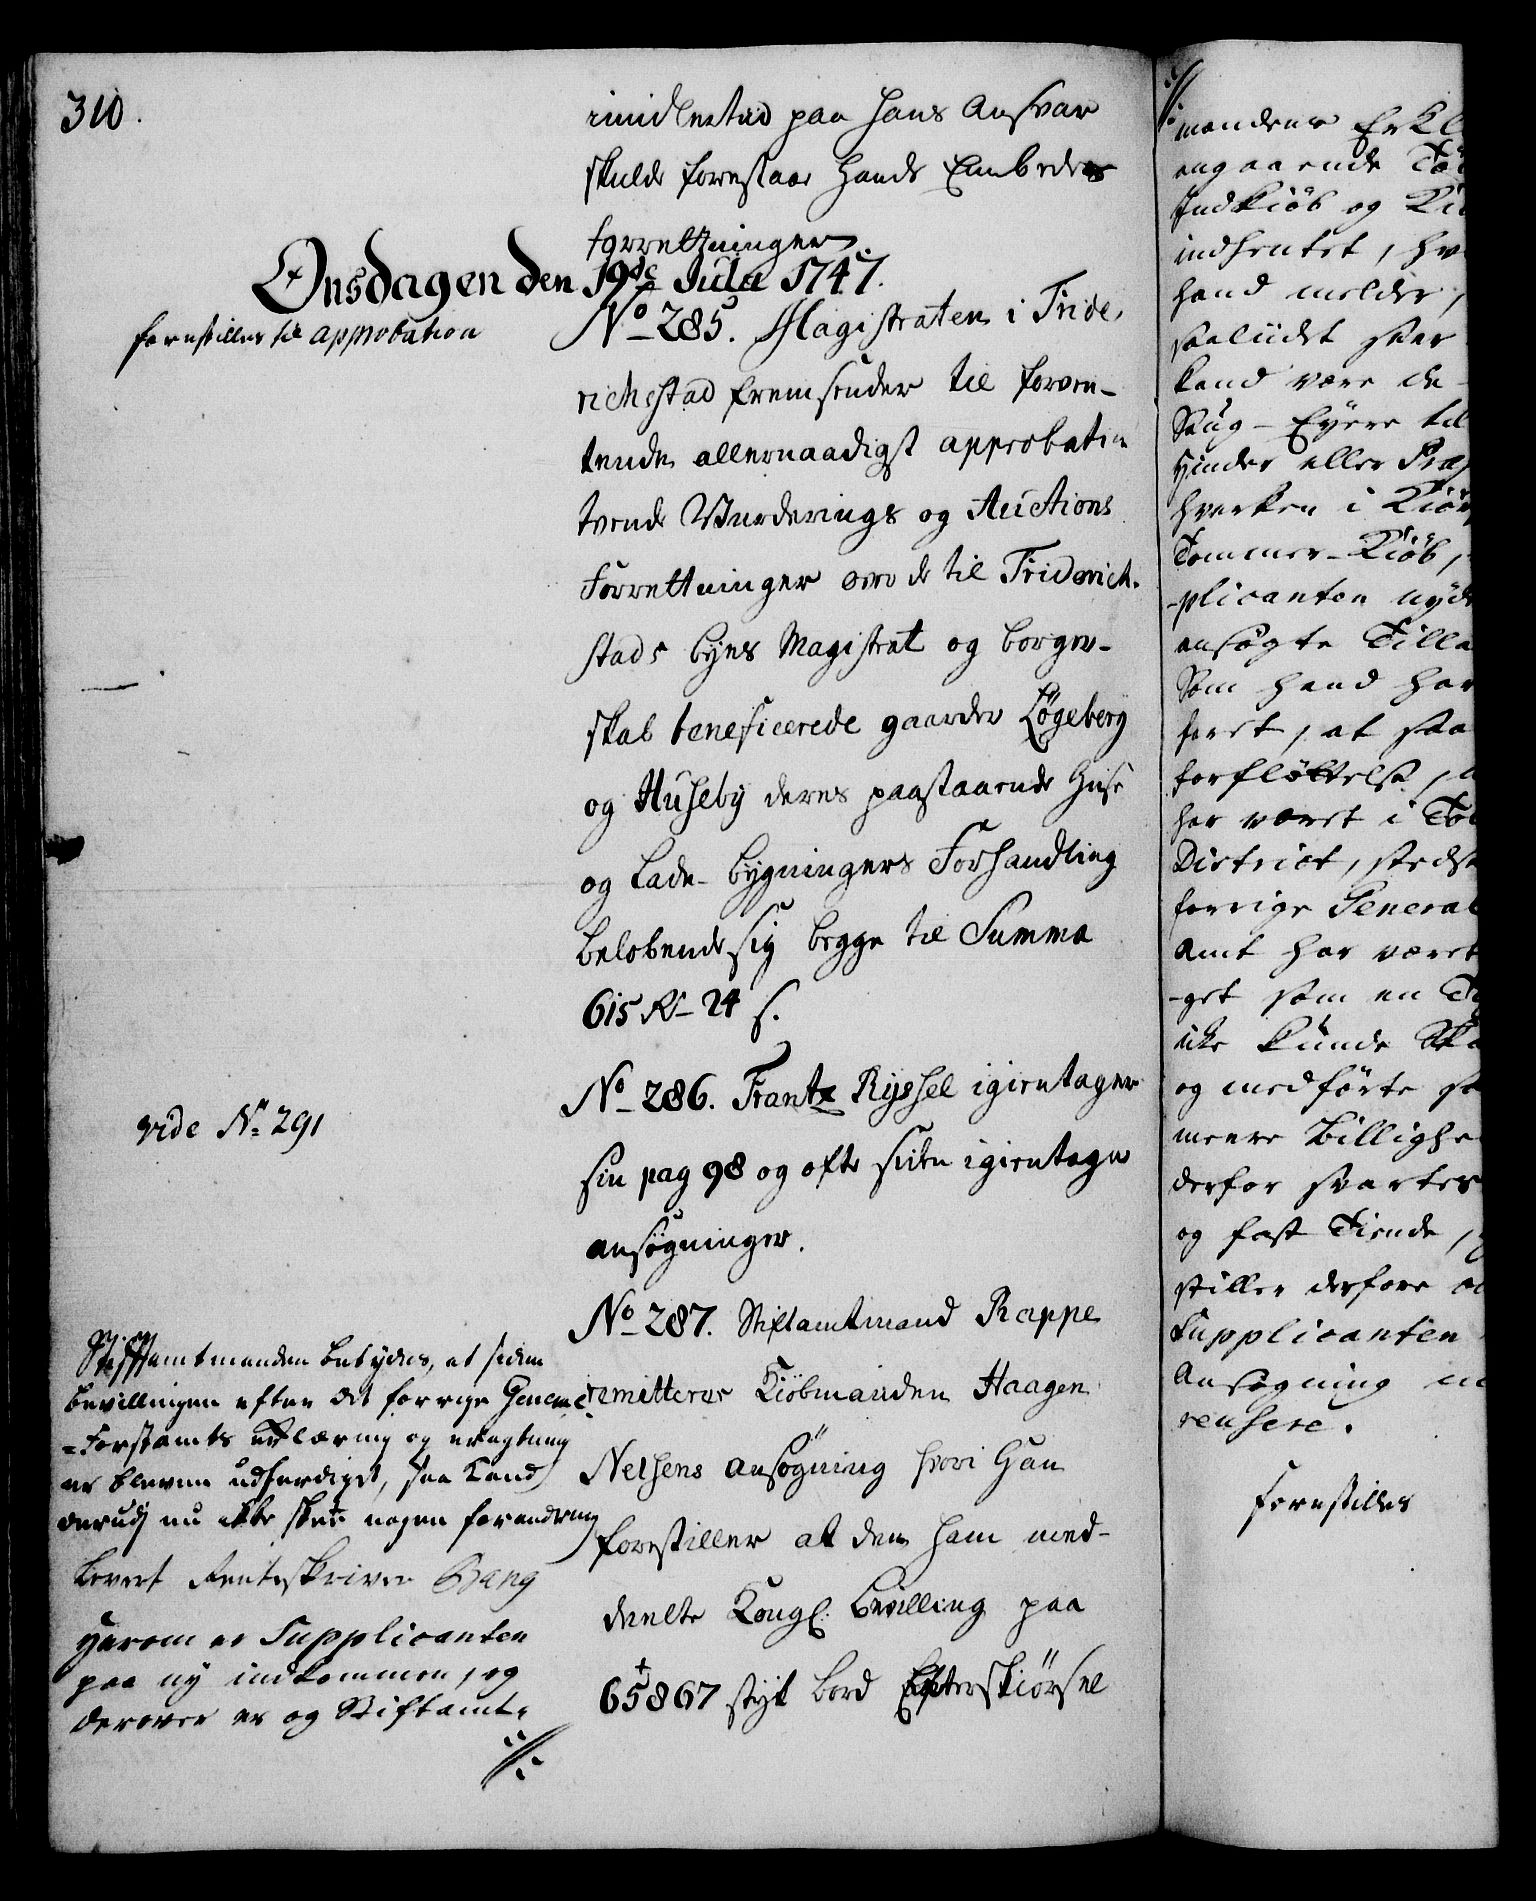 310.
imidlertid paa hans Ansvar
skulde forestaae hands Embedes
forrettninger.
Onsdagen den 19de Julii 1747.
forestilles til approbation
No 285. Magistraten i Fride,
richstad fremsender til forven-
tende allernaadigst approbation
tvende Vurderings og Auctions
Forrettninger over de til Friderich-
stads byes Magistrat og borger-
skab beneficerede gaarder Løgeberg
og Huseby deres paastaaende Huse
og Lade-bygningers Forhandling
belobende sig begge til Summa
615 Rd 24 s.
vide No 291
No 286. Frantz Ryssel igientager
sin pag 98 og ofte siden igientagne
ansøgninger.
No 287. Stiftamtmand Rappe
remitterer Kiøbmanden Haagen
Nelsens ansøgning hvori Han
forestiller at den ham med-
deelte Kongl: bevilling paa
65867 styk bord Efterskiørsel
Stiftamtmanden betydes, at siden
bevillingen efter det forrige General
=Forstamts erklæring og eragtning
er bleven udferdiget, saa kand
derudj nu ikke skee nogen forandring
Levert Renteskriver Bang
Herom er Supplicanten
paa ny indkommen, og
derover er og Stiftamt-
./.
./.
mandens Erkl
angaaende
Indkiøb og
indhentet, hv
hand melder,
saaliidet
kand være de
Saug-Eyere til
Hinder eller
hverken i
Tømmer-Kiøb,
-plicanten nyde
ansøgte Tilla
som hand har
først, at saa
forfløttelse,
har været i
District, stedse
forrige General
Amt har været
-get som en
ikke kunde
og medførte
meere Billighe
derfor svartes
og fast Tiende,
stiller derfore
Supplicanten
Ansøgning
ren
Forestilles